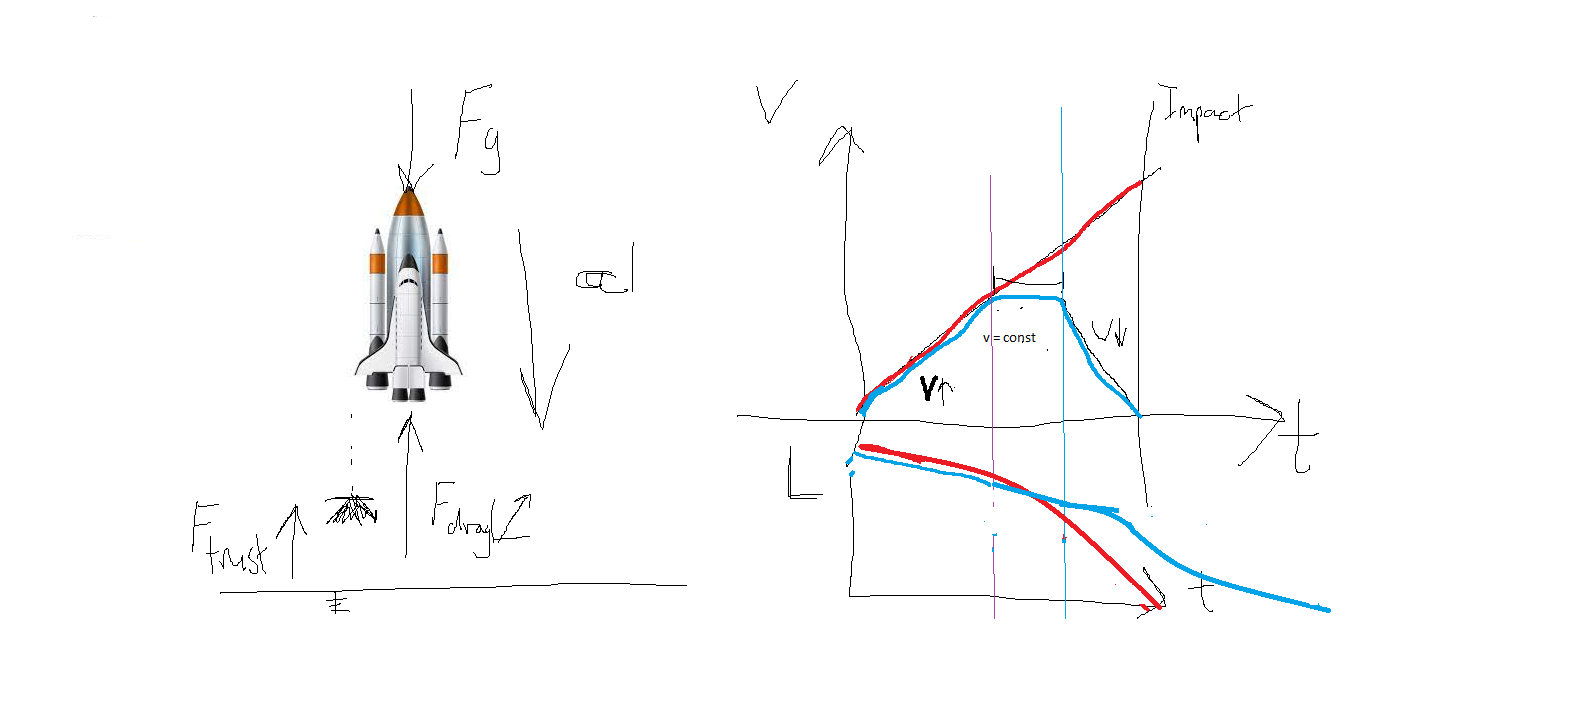 Fg
a
Ftrust
Fdrag
V
Impact
v = const
V↑
V↓
t
L
t